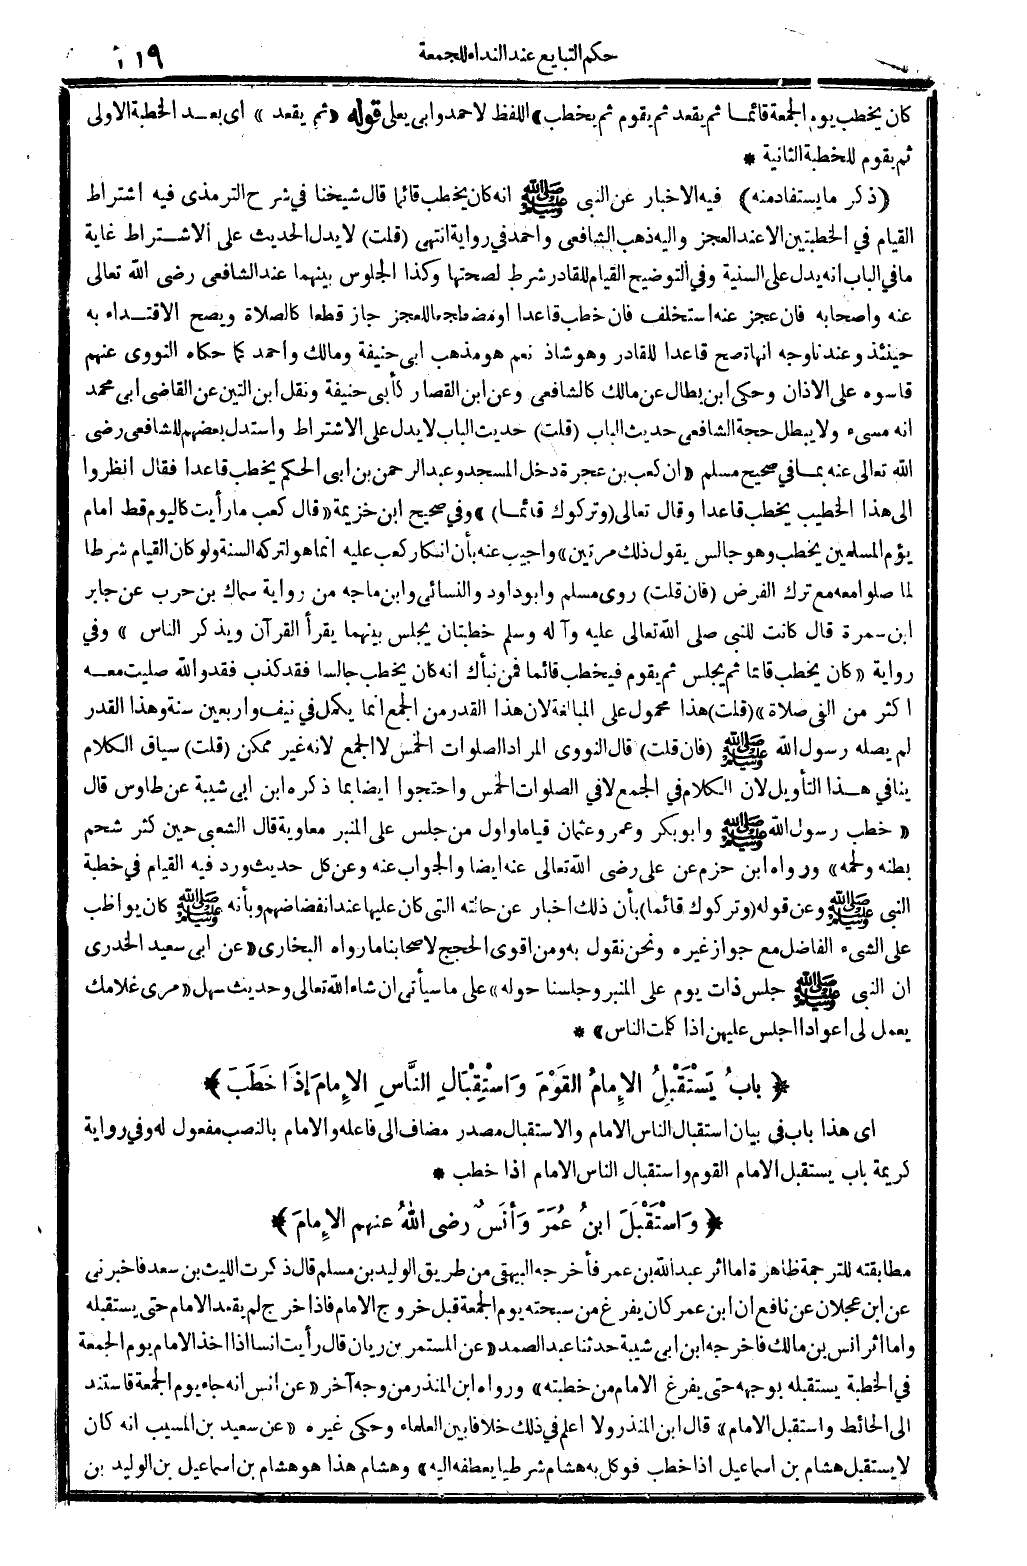 حكم التبايع عند النداء للجمعة
٢١٩
كان يخطب يوم الجمعة قائما ثم يقعد ثم يقوم ثم يخطب» اللفظ لاحمد وابى يعلى قوله «ثم يقعد» اى بعد الخطبة الاولى
ثم يقوم للخطبة الثانية *
(ذكر ما يستفاد منه) فيه الاخبار عن النبى ﷺ انه كان يخطب قائما قال شيخنا في شرح الترمذى فيه اشتراط
القيام في الخطبتين الا عند العجز واليه ذهب الشافعى واحمد في رواية انتهى (قلت) لا يدل الحديث على الاشتراط غاية
ما في الباب انه يدل على السنية وفي التوضيح القيام للقادر شرط لصحتها وكذا الجلوس بينهما عند الشافعى رضى الله تعالى
عنه واصحابه فان عجز عنه استخلف فان خطب قاعدا او مضطجعا للعجز جاز قطعا كالصلاة ويصح الاقتداء به
حينئذ وعندنا وجه انها تصح قاعدا للقادر وهو شاذ نعم هو مذهب ابى حنيفة ومالك واحمد كما حكاه النووى عنهم
قاسوه على الاذان وحكى ابن بطال عن مالك كالشافعى وعن ابن القصار كأبى حنيفة ونقل ابن التين عن القاضى ابى محمد
انه مسىء ولا يبطل حجة الشافعى حديث الباب (قلت) حديث الباب لا يدل على الاشتراط واستدل بعضهم للشافعى رضى
الله تعالى عنه بما في صحيح مسلم «ان كعب بن عجرة دخل المسجد وعبد الرحمن بن ابى الحكم يخطب قاعدا فقال انظروا
الى هذا الخطيب يخطب قاعدا وقال تعالى (وتركوك قائما)» وفي صحيح ابن خزيمة «قال كعب ما رأيت كاليوم قط امام
يؤم المسلمين يخطب وهو جالس يقول ذلك مرتين» واجيب عنه بأن انكار كعب عليه انما هو لتركه السنة ولو كان القيام شرطا
لما صلوا معه مع ترك الفرض (فان قلت) روى مسلم وابو داود والنسائى وابن ماجه من رواية سماك بن حرب عن جابر
ابن سمرة قال كانت للنبى صلى الله تعالى عليه وآله وسلم خطبتان يجلس بينهما يقرأ القرآن ويذكر الناس» وفي
رواية «كان يخطب قائما ثم يجلس ثم يقوم فيخطب قائما فمن نبأك انه كان يخطب جالسا فقد كذب فقد والله صليت معه
اكثر من الفى صلاة» (قلت) هذا محمول على المبالغة لان هذا القدر من الجمع انما يكمل في نيف واربعين سنة وهذا القدر
لم يصله رسول الله ﷺ (فان قلت) قال النووى المراد الصلوات الخمس لا الجمع لانه غير ممكن (قلت) سياق الكلام
ينافي هذا التأويل لان الكلام في الجمع لا في الصلوات الخمس واحتجوا ايضا بما ذكره ابن ابى شيبة عن طاوس قال
«خطب رسول الله ﷺ وابو بكر وعمر وعثمان قياما واول من جلس على المنبر معاوية قال الشعبى حين كثر شحم
بطنه ولحمه» ورواه ابن حزم عن على رضى الله تعالى عنه ايضا والجواب عنه وعن كل حديث ورد فيه القيام في خطبة
النبى ﷺ وعن قوله (وتركوك قائما) بأن ذلك اخبار عن حالته التى كان عليها عند انفضاضهم وبأنه ﷺ كان يواظب
على الشىء الفاضل مع جواز غيره ونحن نقول به ومن اقوى الحجج لاصحابنا ما رواه البخارى «عن ابى سعيد الخدرى
ان النبى ﷺ جلس ذات يوم على المنبر وجلسنا حوله» على ما سيأتى ان شاء الله تعالى وحديث سهل «مرى غلامك
يعمل لى اعوادا اجلس عليهن اذا كلمت الناس» *
﴿ بابُ يَسْتَقْبِلُ الإِمامُ القَوْمَ وَاسْتِقْبَالِ النَّاسِ الإِمامَ إذَا خَطَبَ ﴾
اى هذا باب في بيان استقبال الناس الامام والاستقبال مصدر مضاف الى فاعله والامام بالنصب مفعول له وفي رواية
كريمة باب يستقبل الامام القوم واستقبال الناس الامام اذا خطب *
﴿ وَاسْتَقْبَلَ ابنُ عُمَرَ وَأنَسٌ رضى اللهُ عنهم الإِمامَ ﴾
مطابقته للترجمة ظاهرة اما اثر عبد الله بن عمر فأخرجه البيهقى من طريق الوليد بن مسلم قال ذكرت الليث بن سعد فاخبرنى
عن ابن عجلان عن نافع ان ابن عمر كان يفرغ من سبحته يوم الجمعة قبل خروج الامام فاذا خرج لم يقعد الامام حتى يستقبله
واما اثر انس بن مالك فاخرجه ابن ابى شيبة حدثنا عبد الصمد «عن المستمر بن ريان قال رأيت انسا اذا اخذ الامام يوم الجمعة
في الخطبة يستقبله بوجهه حتى يفرغ الامام من خطبته» ورواه ابن المنذر من وجه آخر «عن انس انه جاء يوم الجمعة فاستند
الى الحائط واستقبل الامام» قال ابن المنذر ولا اعلم في ذلك خلافا بين العلماء وحكى غيره «عن سعيد بن المسيب انه كان
لا يستقبل هشام بن اسماعيل اذا خطب فوكل به هشام شرطيا يعطفه اليه» وهشام هذا هو هشام بن اسماعيل بن الوليد بن